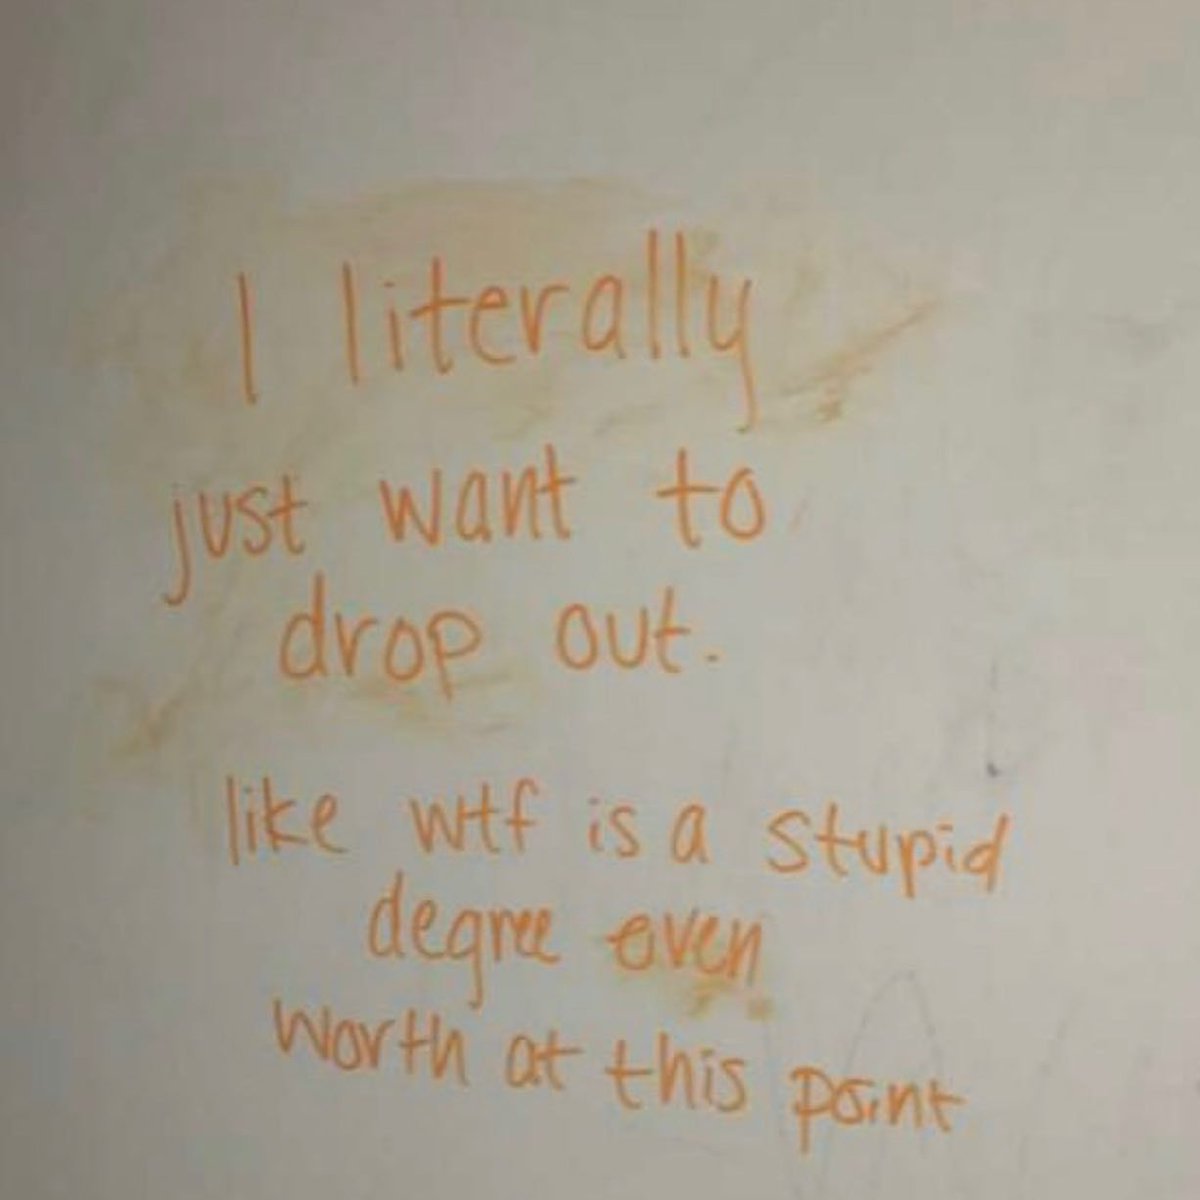 I literally
just want to
drop out.
like wtf is a stupid
degree even
worth at this point